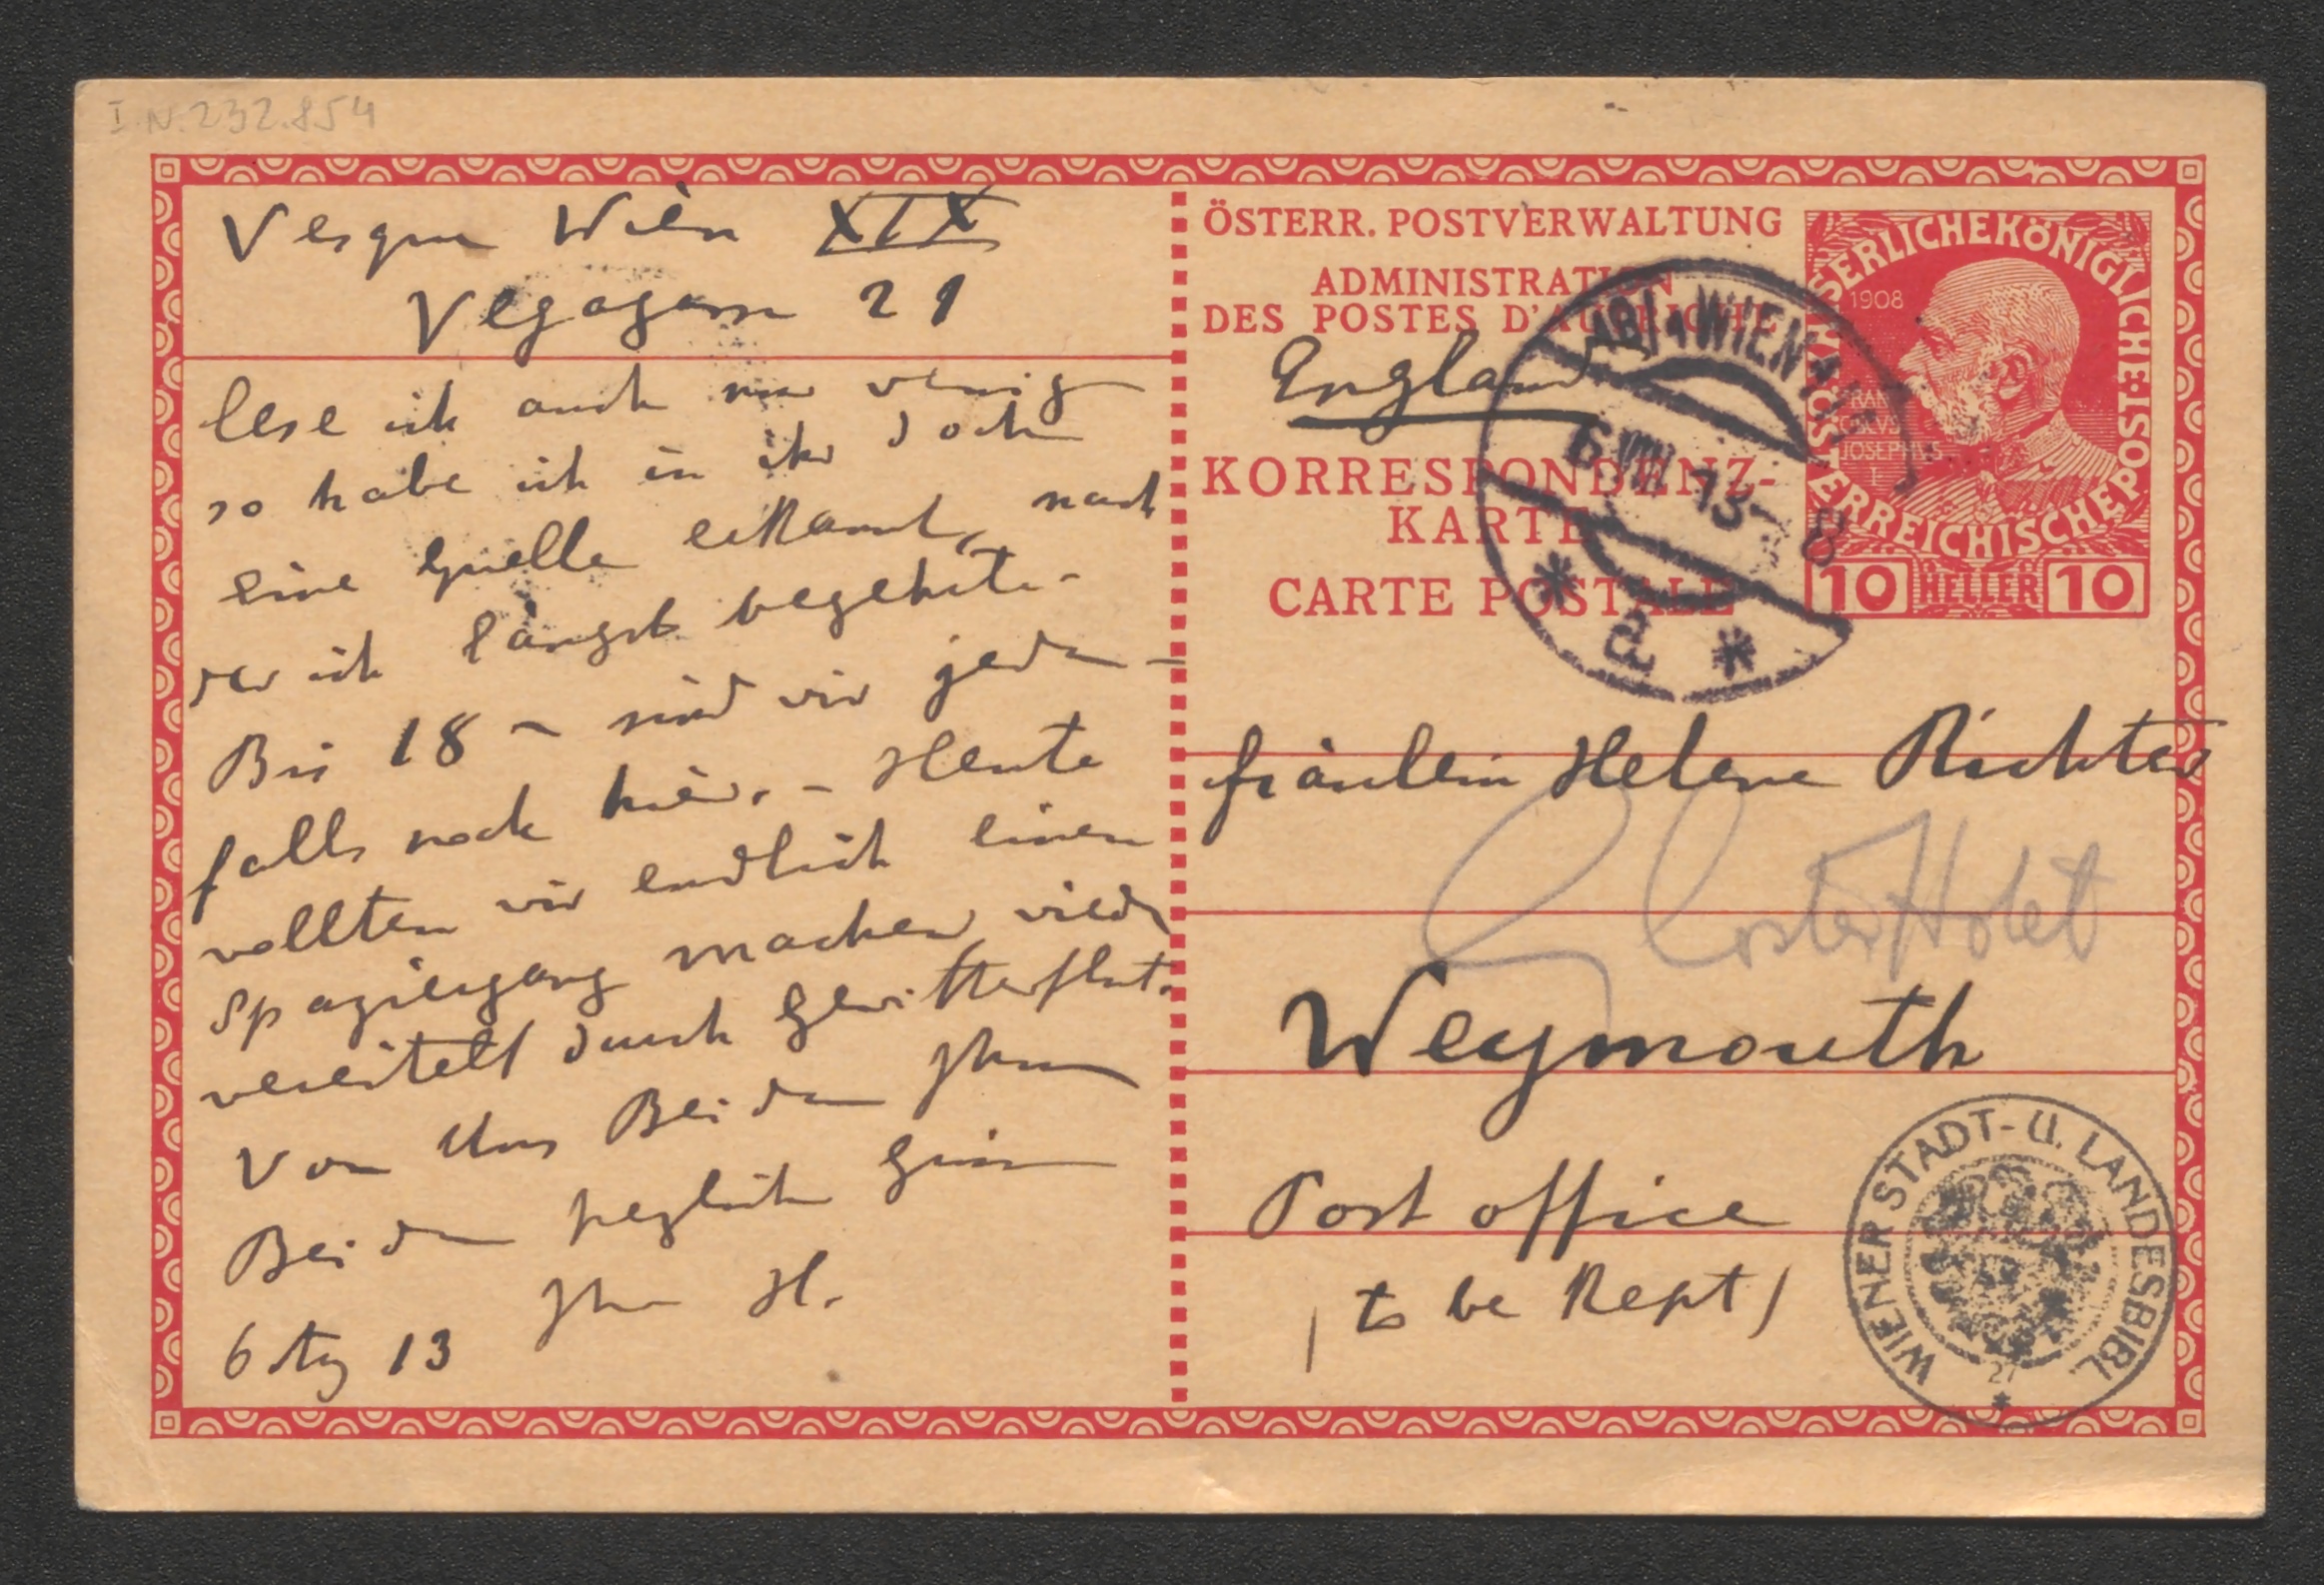 I.N.232.854
Vesque Wien XIX
Vegagasse 21
lese ich auch nur wenig
so habe ich in ihr doch
eine Quelle erkannt, nach
der ich längst begehrte.
Bis 18 - sind wir jeden-
falls noch hier. - Heute
wollten wir endlich einen
Spaziergang machen, wieder
vereitelt durch Gewitterflut.
Von Uns Beiden Ihnen
Beiden herzlich
Ihr H.
6 Aug 13
ÖSTERR. POSTVERWALTUNG
ADMINISTRATION
DES POSTES D'AUTRICHE
England
KORRESPONDENZ-
KARTE
CARTE POSTALE
WIEN
6.VIII.13-8
a
KAISERLICHEKÖNIGLICHE ÖSTERREICHISCHEPOST
1908
JOSEPHVS
I.
10 HELLER 10
Fräulein Helene Richter
Gloster Hotel
Weymouth
Post office
(to be kept)
WIENER STADT- U. LANDESBIBL.
21